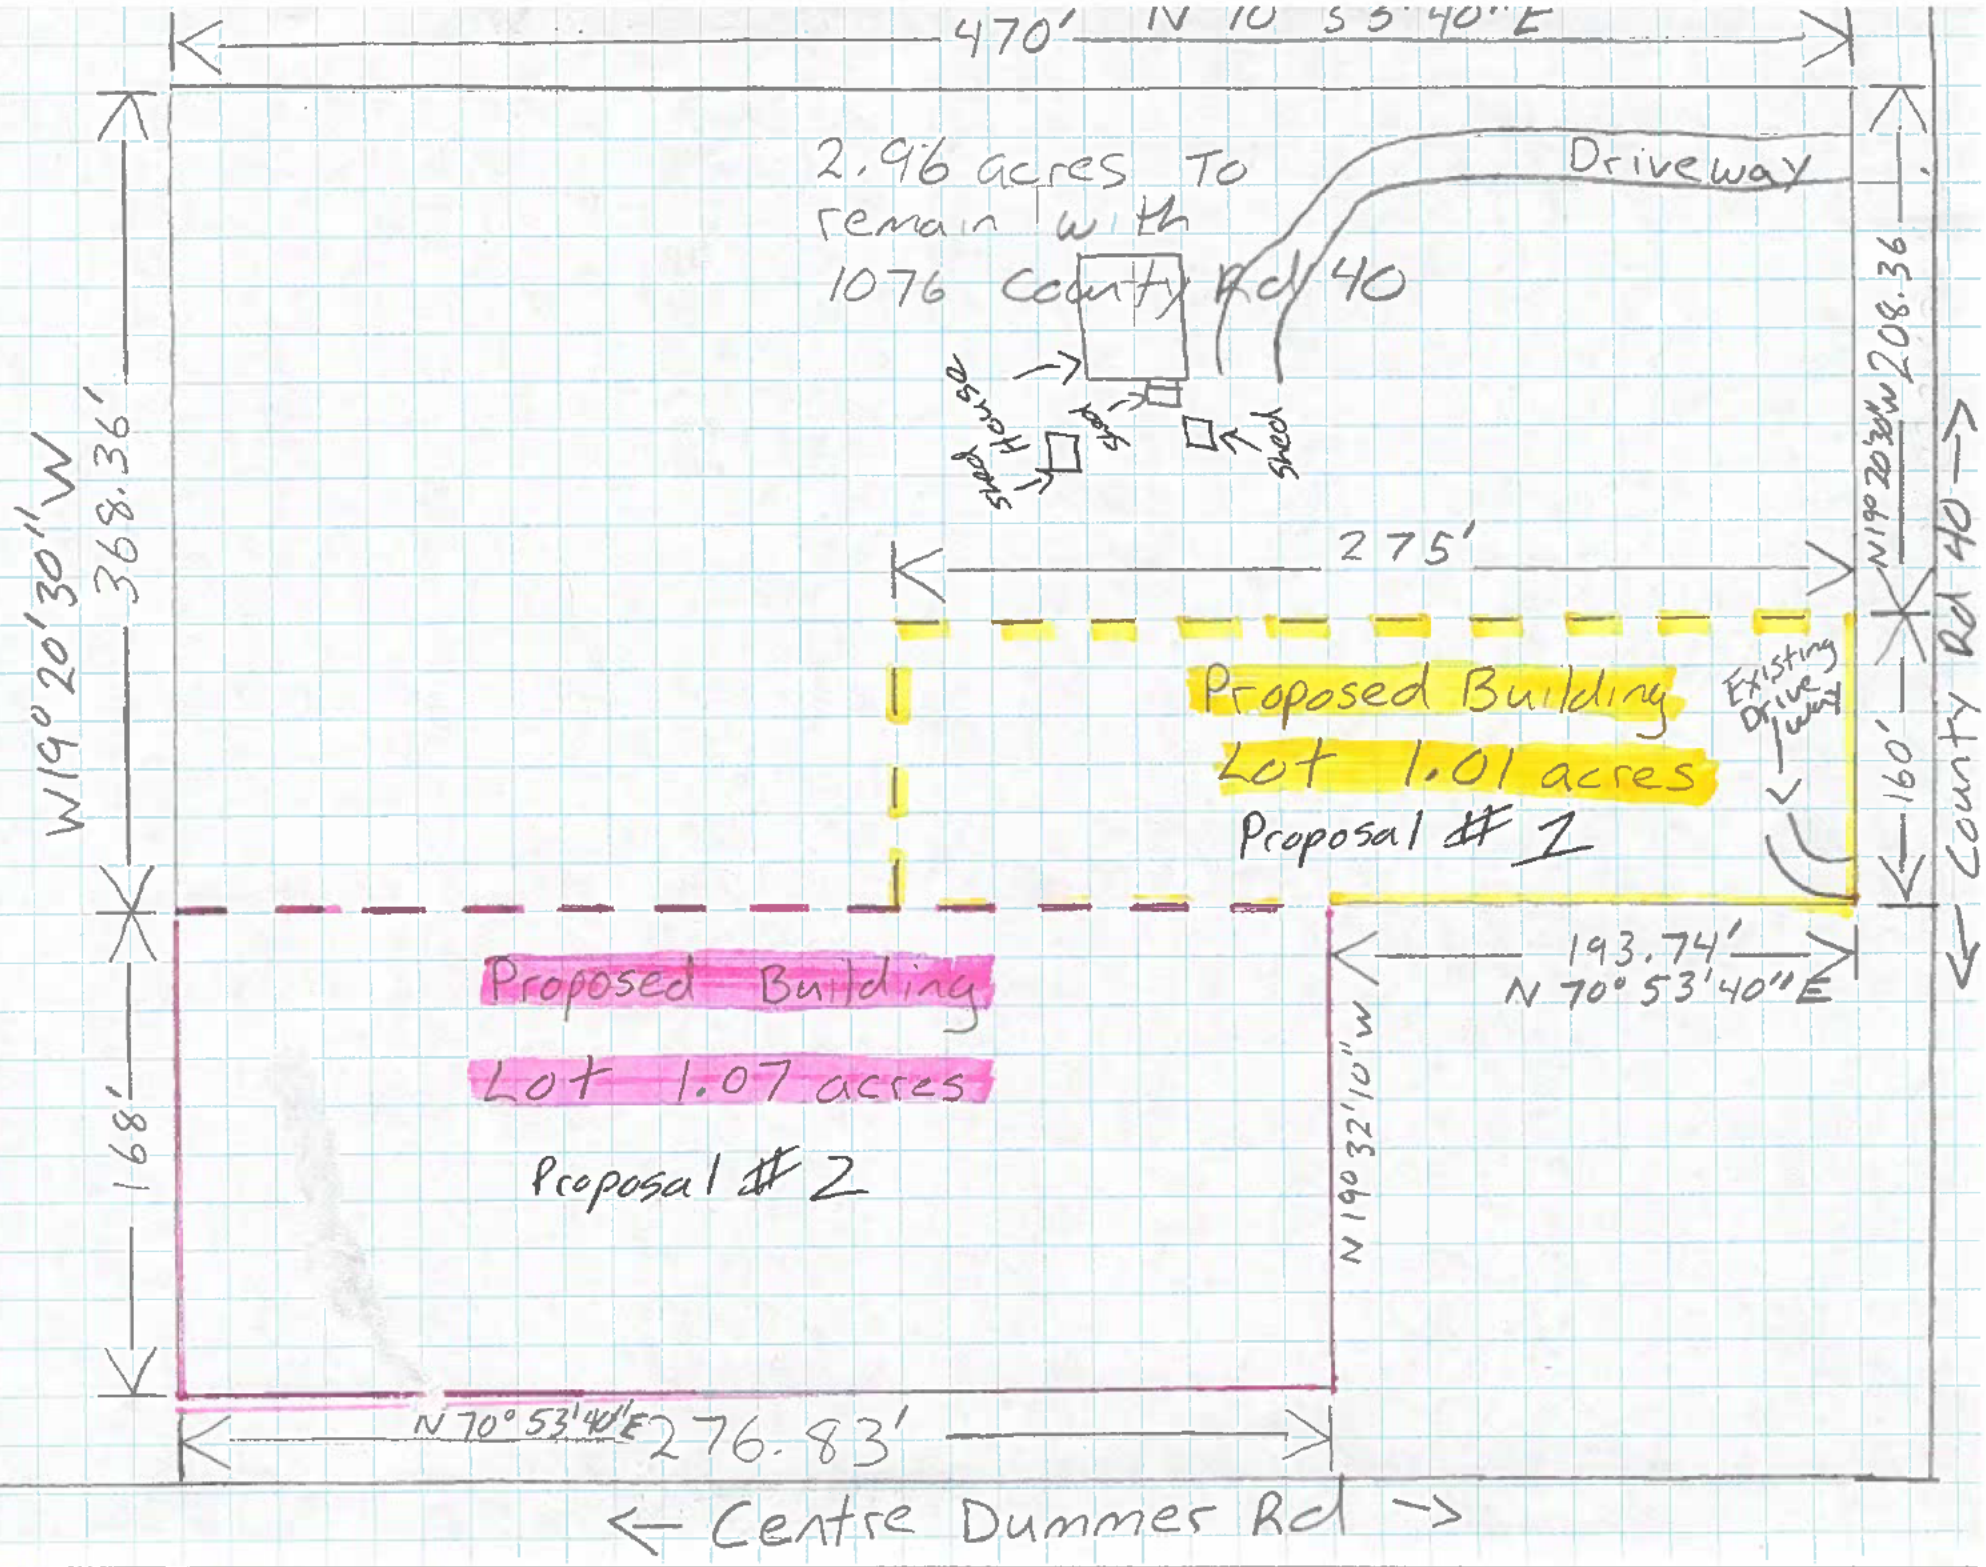 470' N 70° 53' 40" E
2.96 acres To
remain with
1076 County Rd 40
Driveway
House
Shed
Shed
Shed
W19° 20' 30" W
368.36'
N19° 20' 30" W 208.36
275'
Proposed Building
Lot 1.01 acres
Proposal # 1
Existing
Drive
way
160'
← County Rd 40 →
193.74'
N 70° 53' 40" E
Proposed Building
Lot 1.07 acres
Proposal # 2
168'
N 19° 32' 10" W
N 70° 53' 40" E 276.83'
← Centre Dummer Rd →